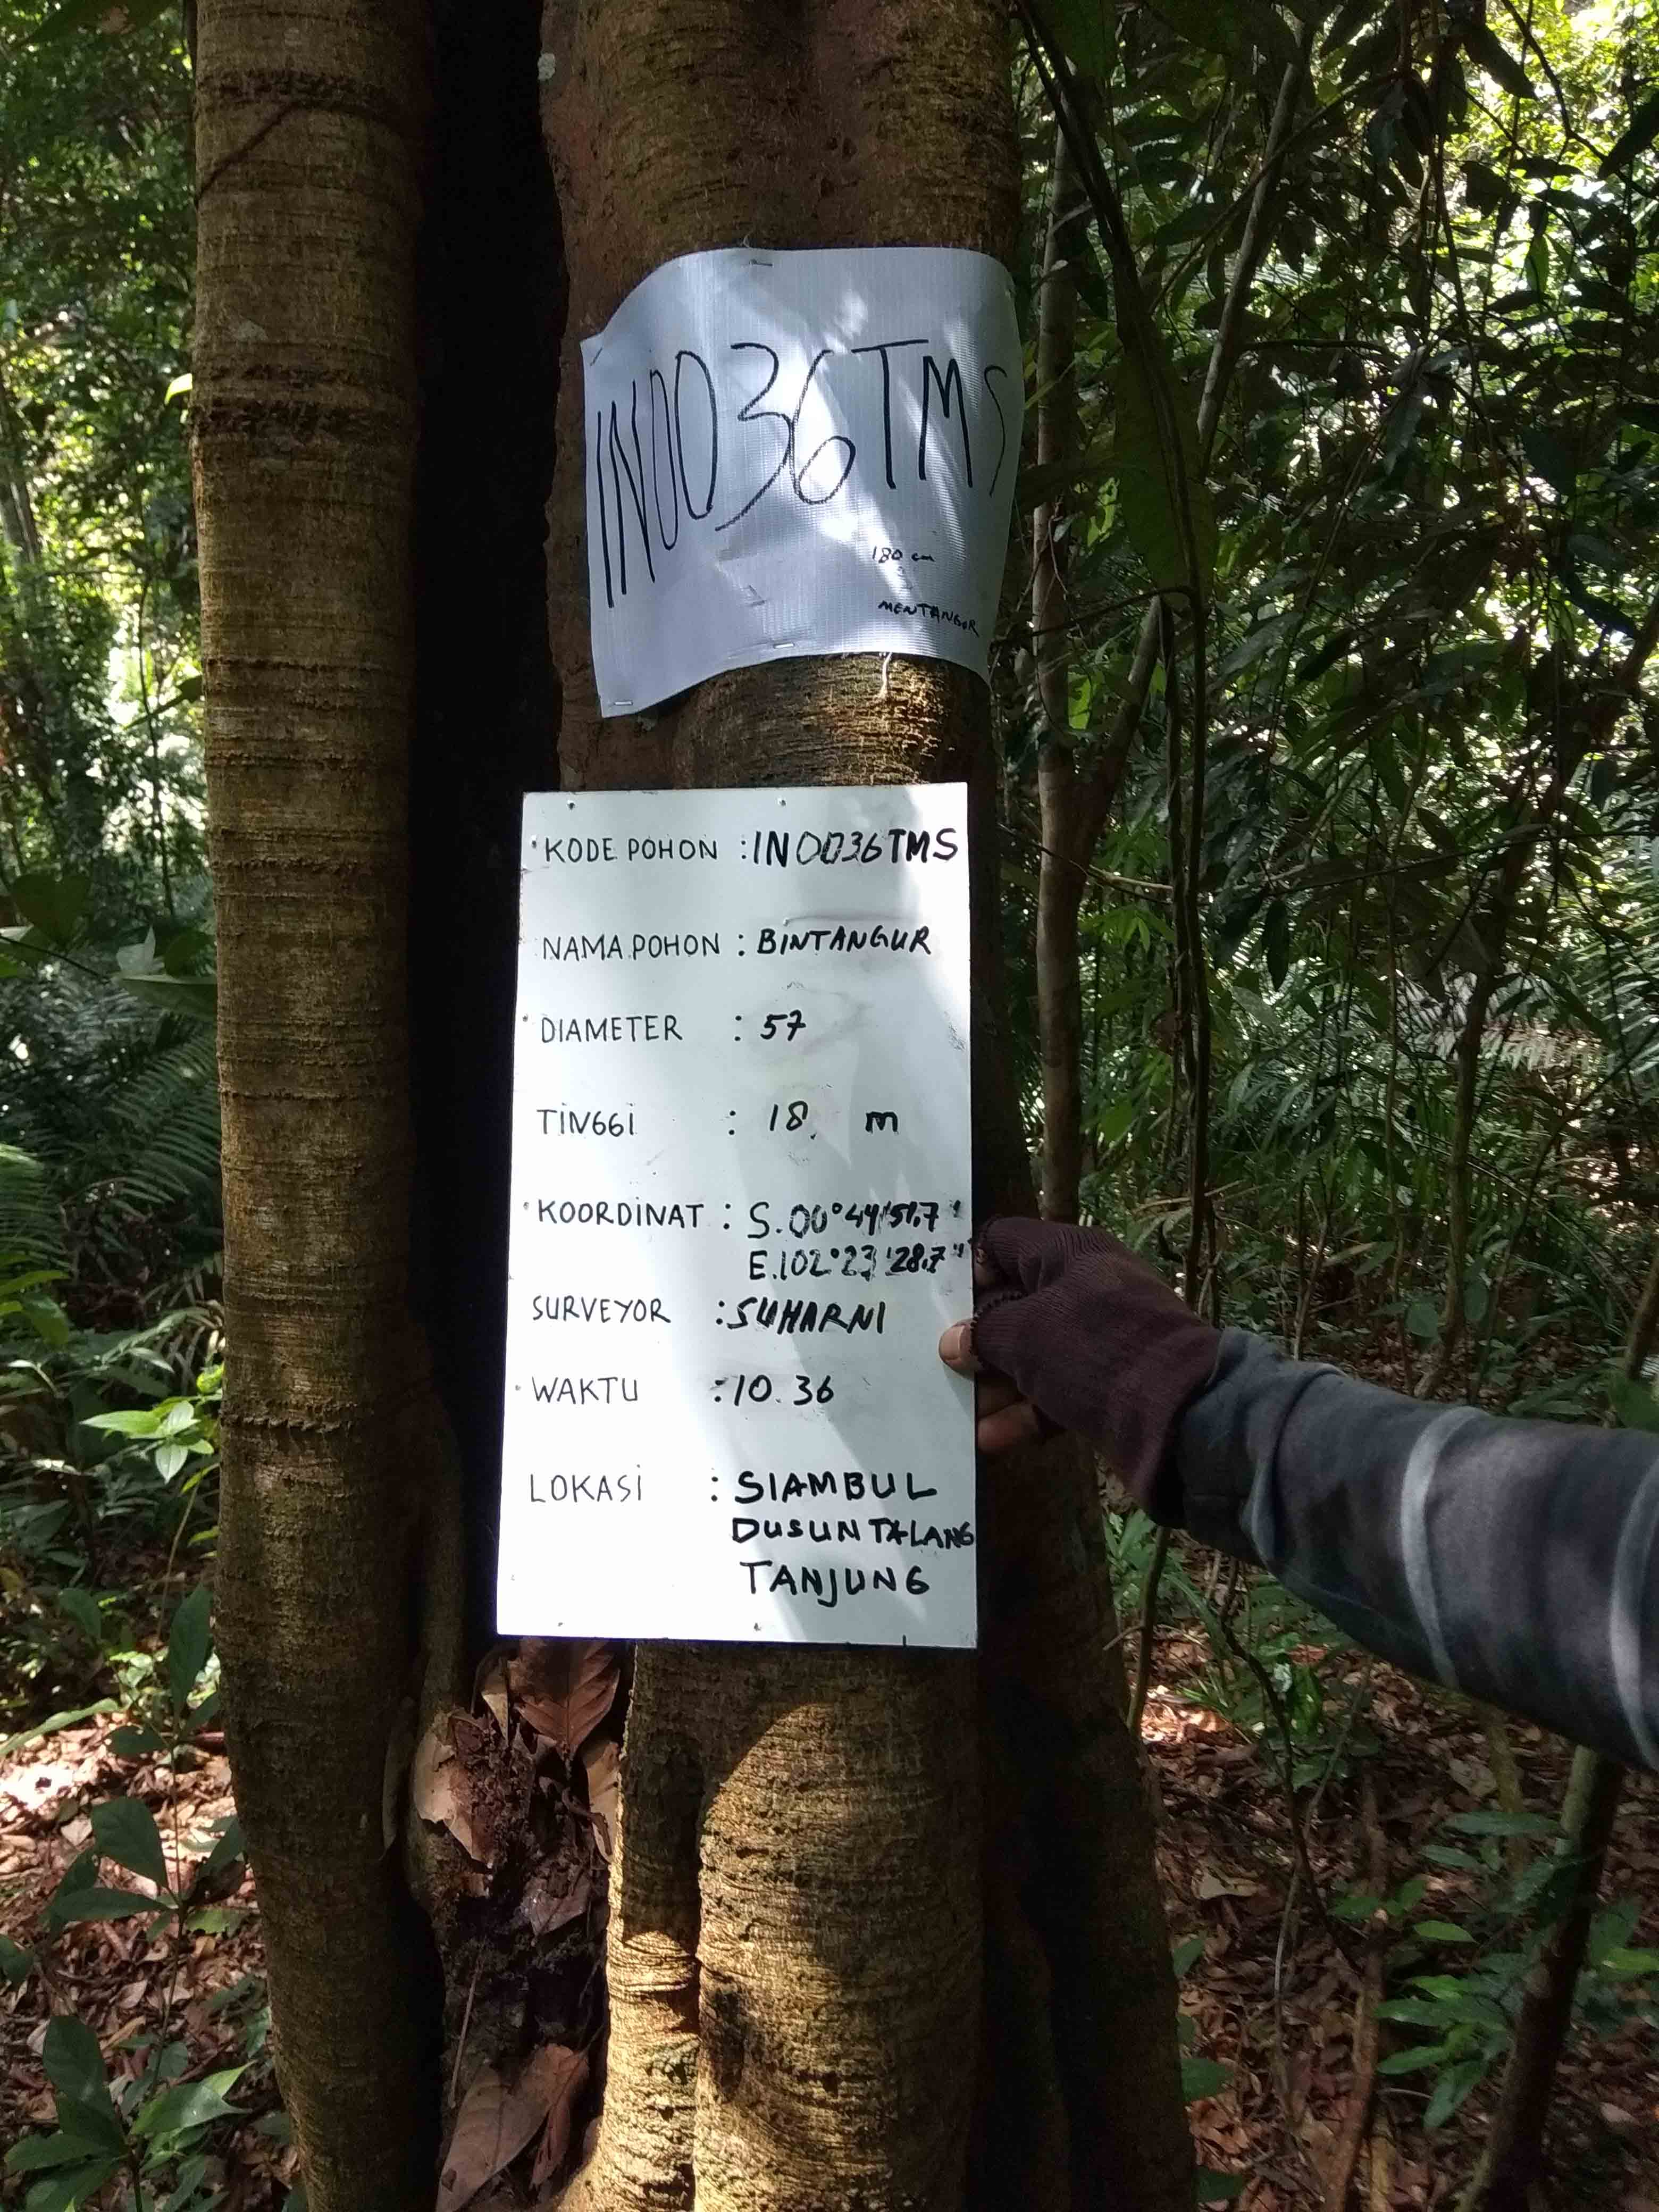 IN0036TMS
180 cm
MENTANGUR
KODE POHON : IN0036TMS
NAMA POHON : BINTANGUR
DIAMETER : 57
TINGGI : 18 m
KOORDINAT : S.00°44'51,7"
E.102°23'28,7"
SURVEYOR : SUHARNI
WAKTU : 10.36
LOKASI : SIAMBUL
DUSUN TALANG
TANJUNG